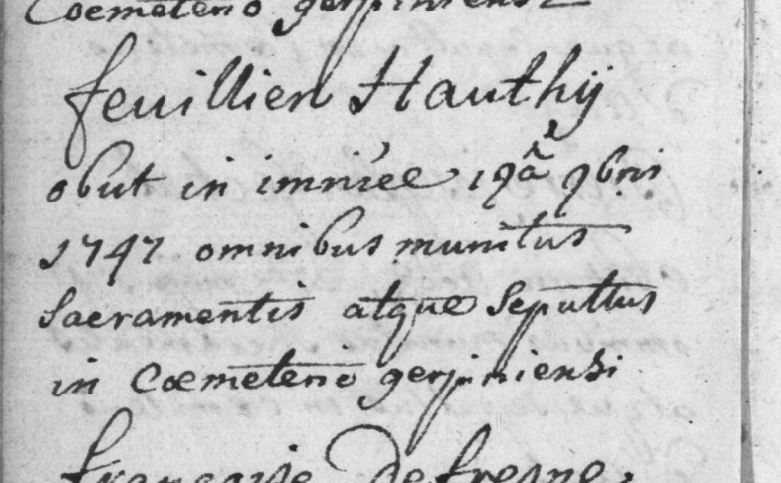 Coemeterio gerpiniensi
feuillien Hauthij
obiit in imniée 19ã 9bris
1747 omnibus munitus
Sacramentis atque Sepultus
in Coemeterio gerpiniensi
françoise Defresne